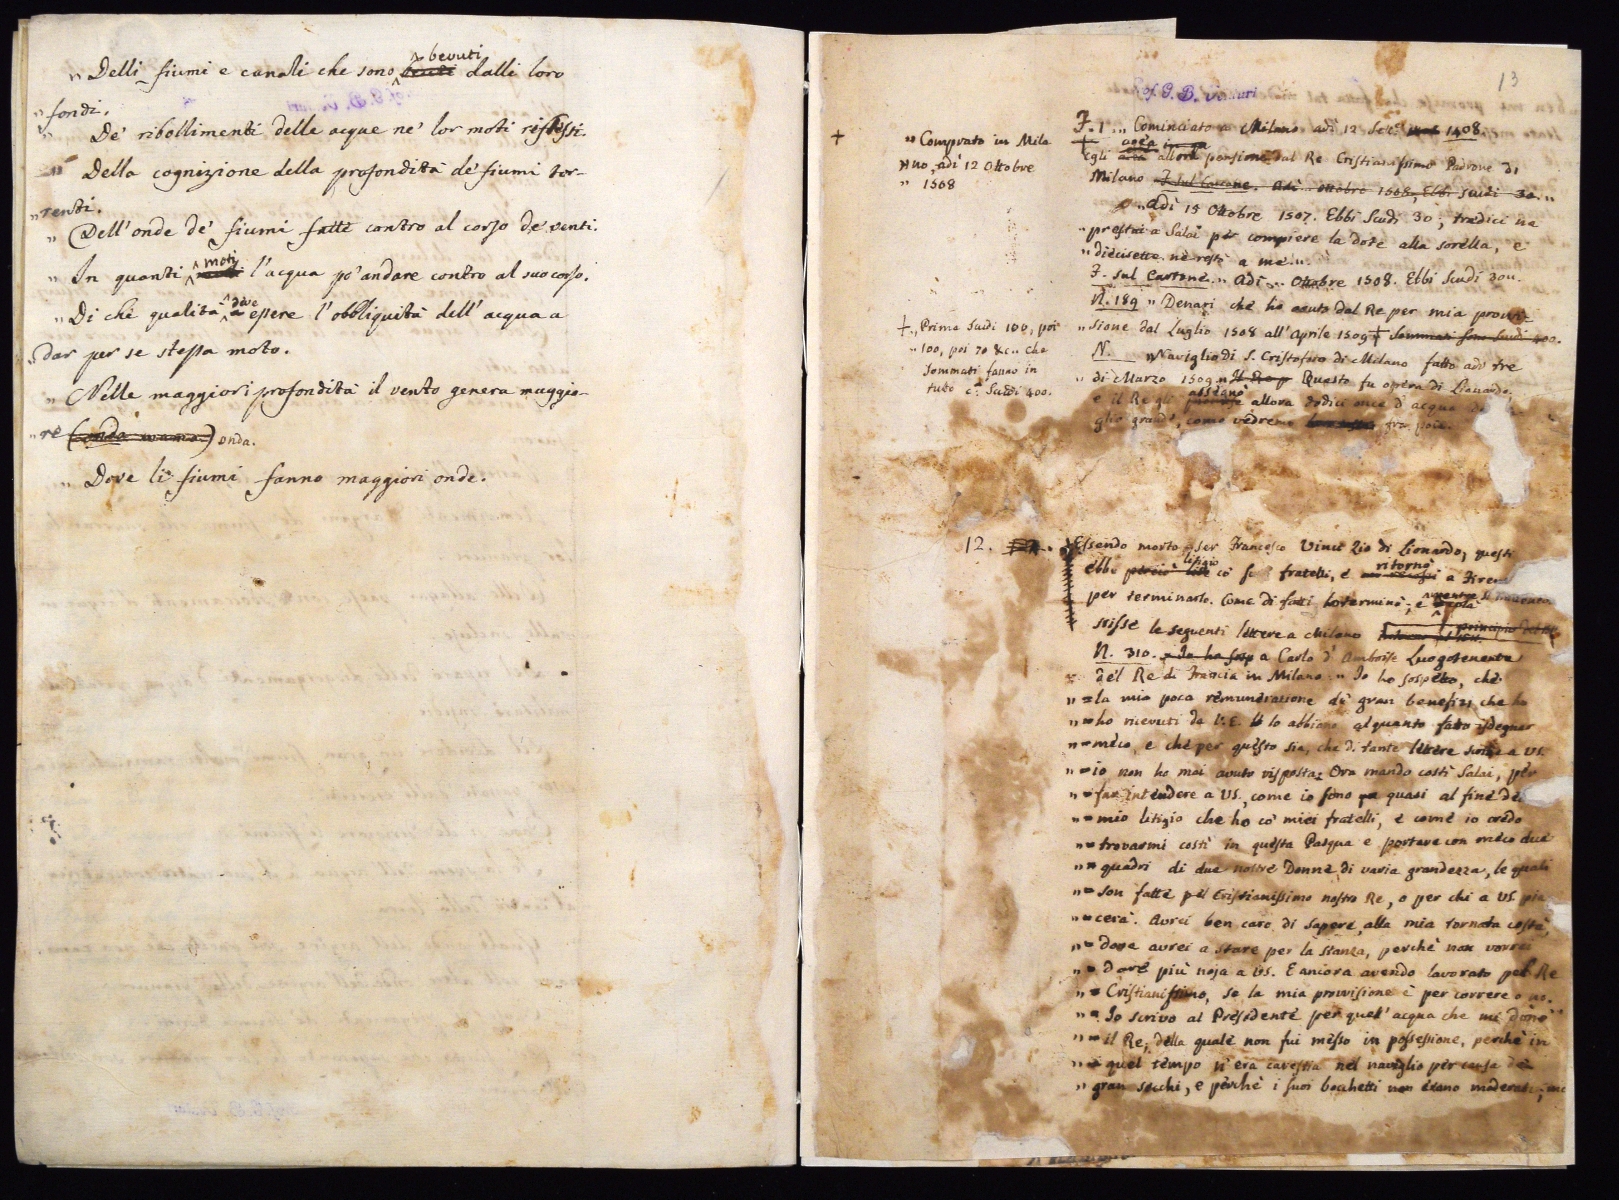 „ Delli fiumi e canali che sono bevuti dalli loro
„ fondi.
„ De' ribollimenti delle acque ne' lor moti riflessi.
„ Della cognizione della profondità de' fiumi tor-
„ renti.
„ Dell'onde de' fiumi fatte contro al corso de' venti.
„ In quanti moti l'acqua po' andare contro al suo corso.
„ Di che qualità deve essere l'obbliquità dell'acqua a
„ dar per se stessa moto.
„ Nelle maggiori profondità il vento genera maggio-
„ re (onda) onda.
„ Dove li fiumi fanno maggiori onde.
13
Prof. G. B. Venturi
+ „ Comprato in Mila
„ no, adì 12 Ottobre
„ 1508
F. 1 „ Cominciato a Milano adì 12 1508.
+ egli avea allora pensione dal Re Cristianissimo Padrone di
Milano F. sul Cartone. Adì Ottobre 1508, Ebbi scudi 30. „
„ Adì 15 Ottobre 1507. Ebbi Scudi 30; tredici ne
„ prestai a Salai per compiere la dote alla sorella, e
„ diecisette ne restò a me. „
F. sul Cartone. „ Adì „ Ottobre 1508. Ebbi Scudi 30 „.
N. 189 „ Denari che ho avuto dal Re per mia provvi-
„ sione dal Luglio 1508 all'Aprile 1509 + Sommati sono Scudi 400.
+ „ Prima Scudi 100, poi
„ 100, poi 70 &c „ che
sommati fanno in
tutto Scudi 400.
N. „ Naviglio di S. Cristofaro di Milano fatto adì tre
„ di Marzo 1509 „ Questo fu opera di Lionardo.
e il Re gli assegnò allora dodici once d'acqua
glio grande, come vedremo fra poco.
12. Essendo morto ser Francesco Vinci Zio di Lionardo, questi
ebbe litigio co' suoi fratelli, e ritornò a Fire
per terminarlo. Come di fatti lo terminò; e mentre
scrisse le seguenti lettere a Milano principio
N. 310. a Carlo d'Amboise Luogotenente
del Re di Francia in Milano „ Io ho sospetto, che
„ la mia poca remunerazione de' gran benefizj che ho
„ ho ricevuti da V. E. lo abbiano alquanto fatto sdegnar
„ meco, e che per questo sia, che di tante lettere scritte a VS.
„ io non ho mai avuto risposta. Ora mando costì Salai, per
„ far intendere a VS., come io sono quasi al fine del
„ mio litigio che ho co' miei fratelli, e come io credo
„ trovarmi costì in questa Pasqua e portare con meco due
„ quadri di due nostre Donne di varia grandezza, le quali
„ son fatte pel Cristianissimo nostro Re, o per chi a VS. pia
„ cerà. Avrei ben caro di sapere, alla mia tornata costà,
„ dove avrei a stare per la stanza, perchè non vorrei
„ dare più noja a VS. E ancora avendo lavorato pel Re
„ Cristianissimo, se la mia provvisione è per correre o no.
„ Io scrivo al Presidente per quell'acqua che mi donò
„ il Re, della quale non fui messo in possessione, perchè in
„ quel tempo n'era carestia nel naviglio per causa de'
„ gran secchi, e perchè i suoi bocchetti non erano moderati; ma